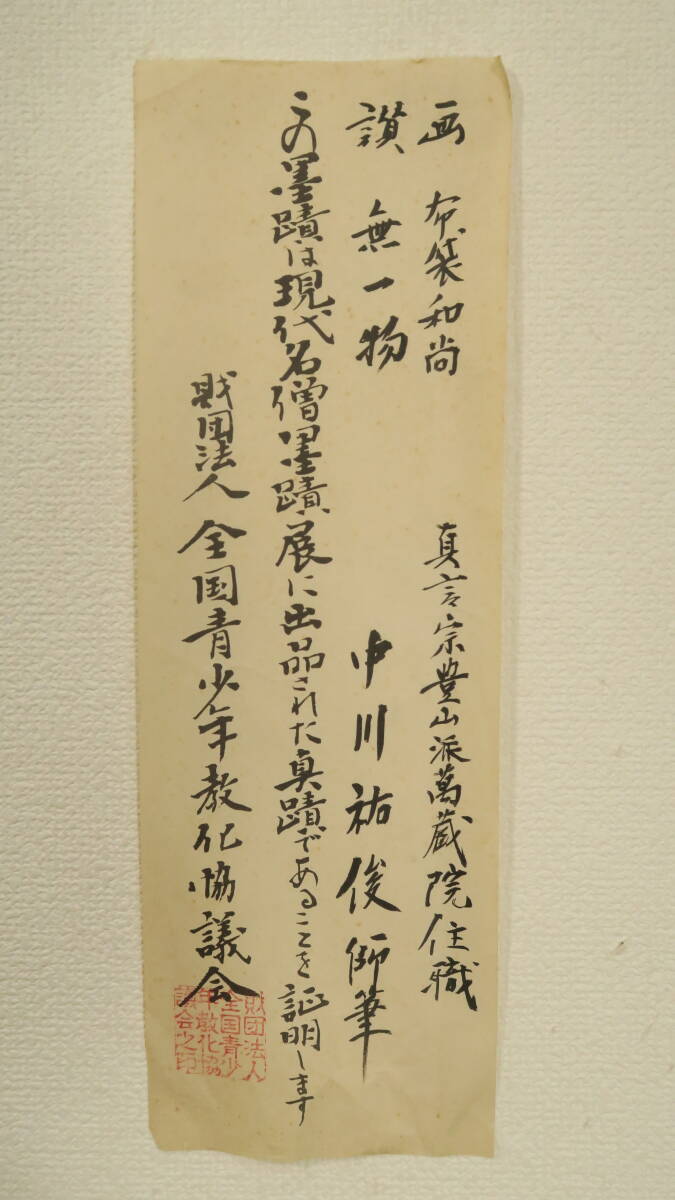 画 布袋和尚
真言宗豊山派萬蔵院住職
讃 無一物
中川祐俊師筆
この墨蹟は現代名僧墨蹟展に出品された真蹟であることを証明します
財団法人 全国青少年教化協議会
財団法人
全国青少
年教化協
議会之印